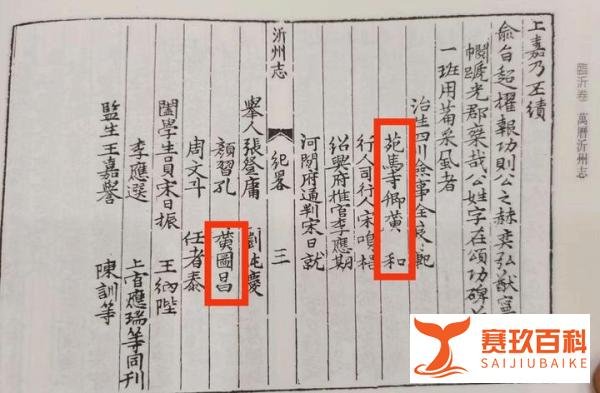 臨沂卷 萬曆沂州志
上嘉乃丕績
僉台超擢報功則公之赫奕弘猷寧
光郡乘哉公姓字在頌功碑
一班用備采風者
治生四川僉事全良範
苑馬寺卿黃 和
行人司行人宋鳴梧
紹興府推官李應期
河間府通判宋日就
沂州志 紀畧 三
舉人張 庸 劉 慶
顏習孔 黃圖昌
周文斗 任者泰
闔學生員宋日振 王納陛
李應選 上官應瑞等同刊
監生王嘉譽 陳訓等
赛玖百科
SAIJIUBAIKE